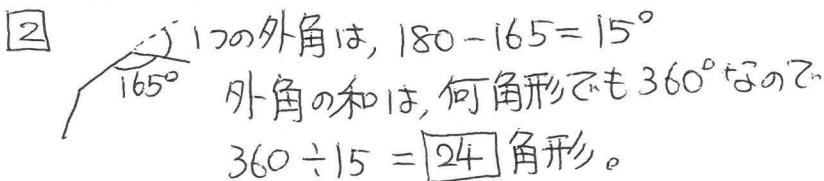 2
165°
1つの外角は, 180-165=15°
外角の和は, 何角形でも360°なので
360÷15 = 24 角形。